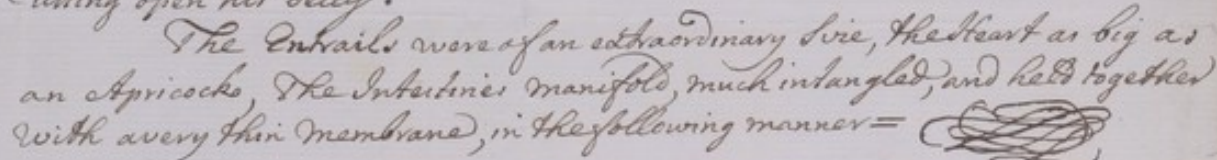 cutting open his belly.
The Entrails were of an extraordinary Sise, the Heart as big as
an Apricocke, The Intestines manifold, much intangled, and held together
with a very thin Membrane, in the following manner=